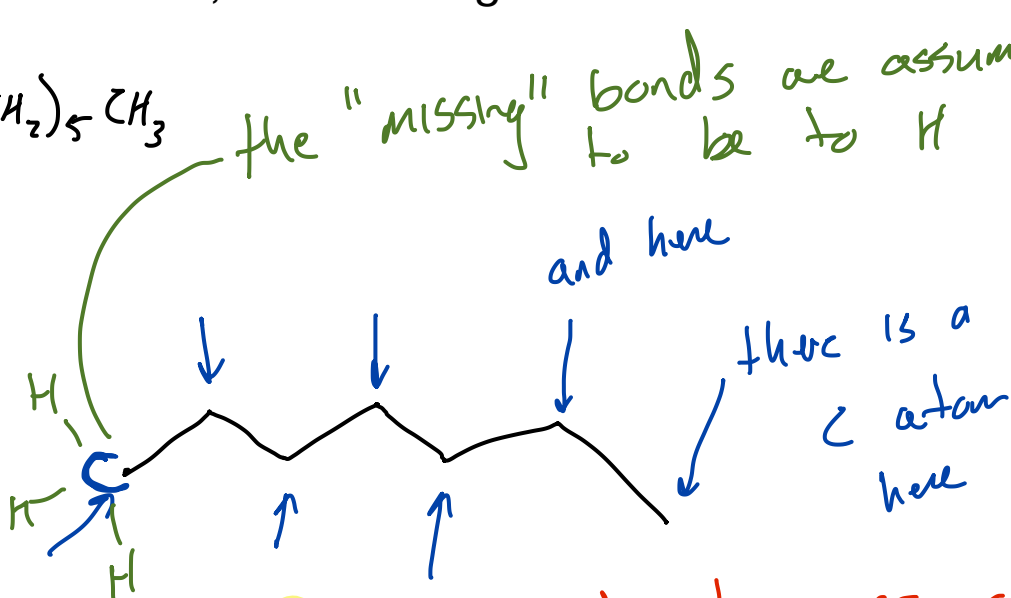 H₂)₅ CH₃
the "missing" bonds are assum
to be to H
and here
there is a
C atom
here
H
C
H
H